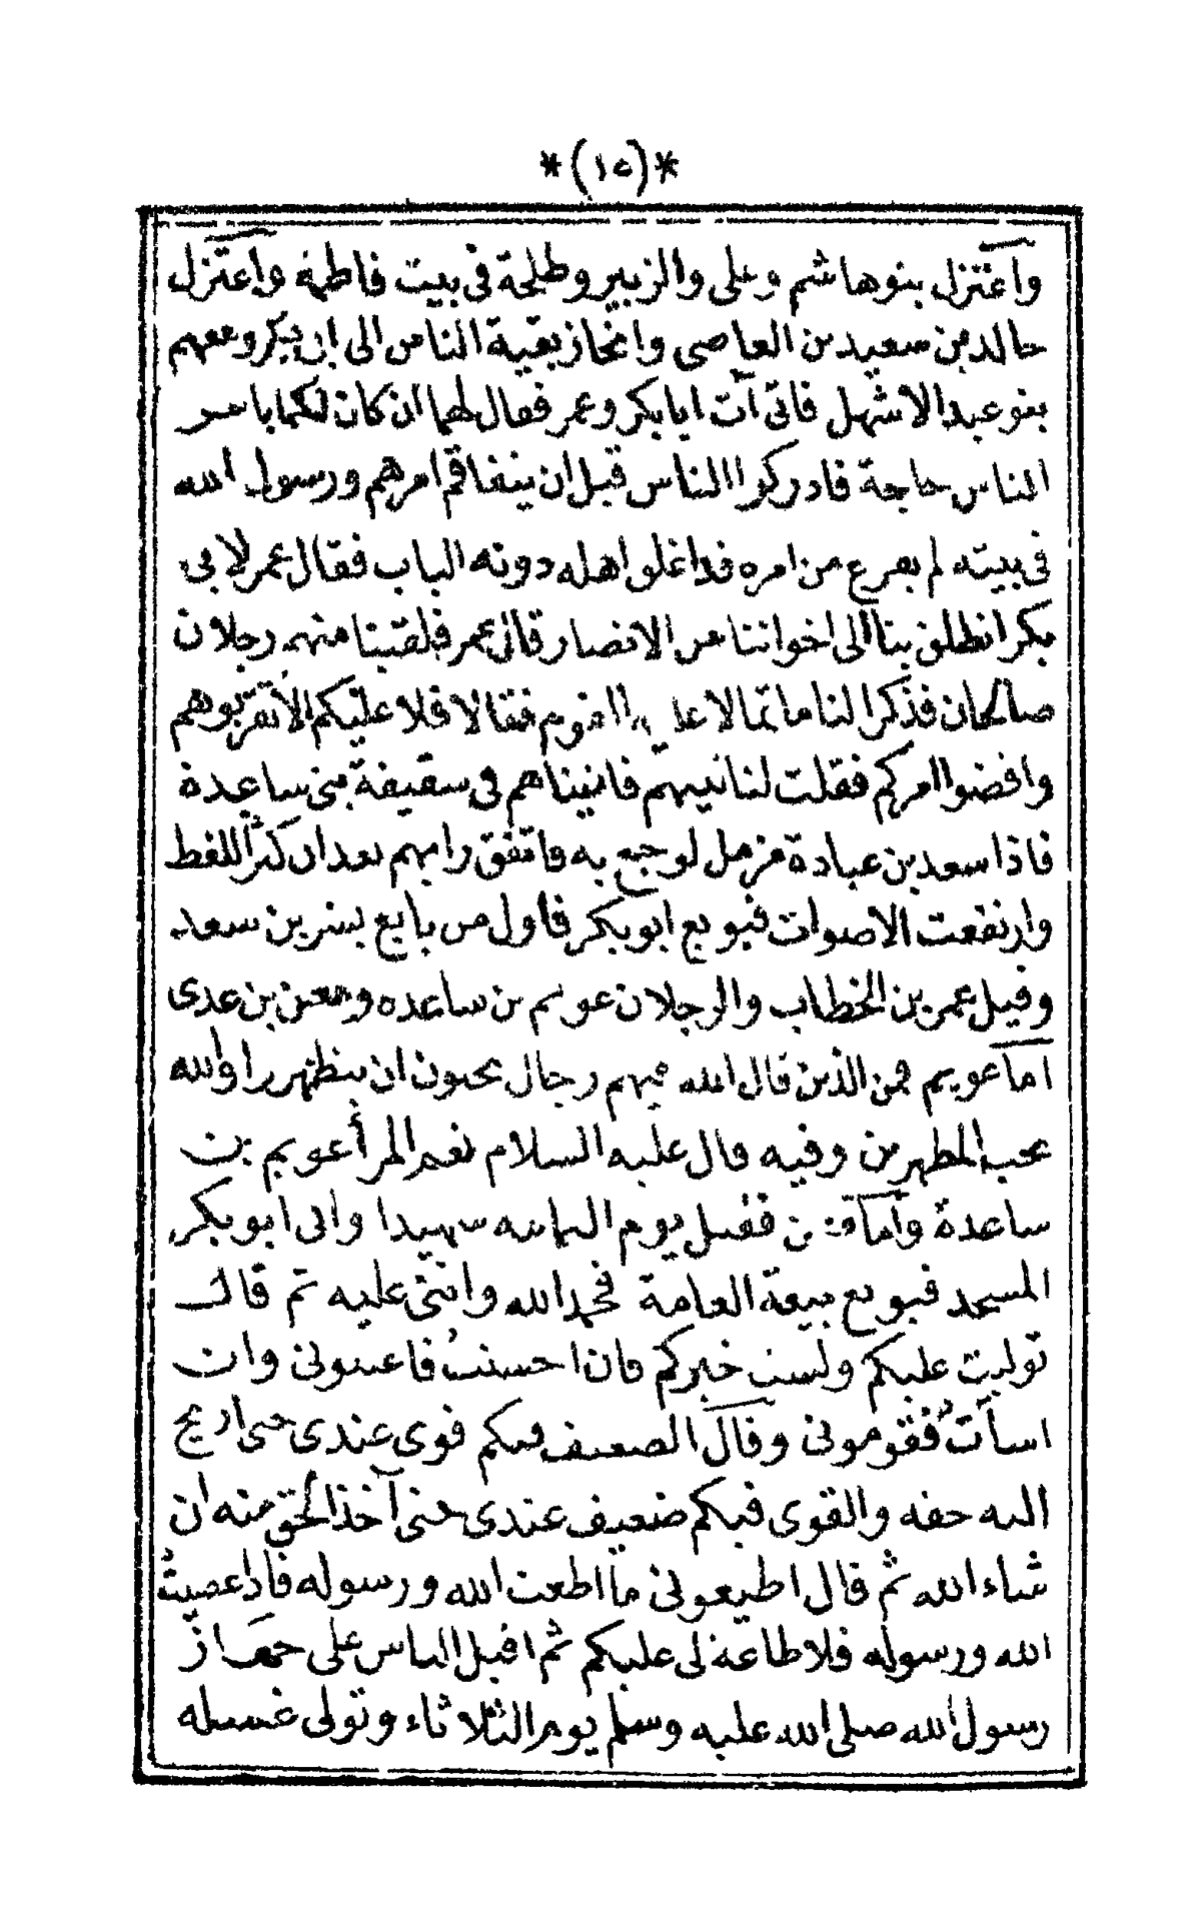 *(١٥)*
واعتزل بنوهاشم وعلى والزبير وطلحة فى بيت فاطمة واعتزل
خالد بن سعيد بن العاصى وانحاز بقية الناس الى ابى بكر ومعهم
بنو عبد الاشهل فاتى آت ابابكر وعمر فقال لهما ان كان لكما بامر
الناس حاجة فادركوا الناس قبل ان يتفاقم امرهم ورسول الله
فى بيته لم يفرغ من امره قد اغلق اهله دونه الباب فقال عمر لابى
بكر انطلق بنا الى اخواننا من الانصار قال عمر فلقينا منهم رجلان
صالحان فذكرا لنا ما تمالا عليه القوم فقالا فلا عليكم الا تقربوهم
وافضوا امركم فقلت لناتينهم فاتيناهم فى سقيفة بنى ساعدة
فاذا سعد بن عبادة مزمل لوجع به فاتفق رايهم بعد ان كثر اللغط
وارتفعت الاصوات فبويع ابو بكر فاول من بايع بشر بن سعد
وقيل عمر بن الخطاب والرجلان عويم بن ساعده ومعن بن عدى
اما عويم فمن الذين قال الله فيهم رجال يحبون ان يتطهروا والله
يحب المطهرين وفيه قال عليه السلام نعم المرأ عويم بن
ساعدة واما معن فقتل يوم اليمامه شهيدا واتى ابو بكر
المسجد فبويع بيعة العامة فحمد الله واثنى عليه ثم قال
توليت عليكم ولست خيركم فان احسنتُ فاعينونى وان
اسأتُ فقومونى وقال الضعيف فيكم قوى عندى حتى اريح
اليه حقه والقوى فيكم ضعيف عندى حتى آخذ الحق منه ان
شاء الله ثم قال اطيعونى ما اطعت الله ورسوله فاذا عصيتُ
الله ورسوله فلا طاعة لى عليكم ثم اقبل الناس على جهاز
رسول الله صلى الله عليه وسلم يوم الثلاثاء وتولى غسله